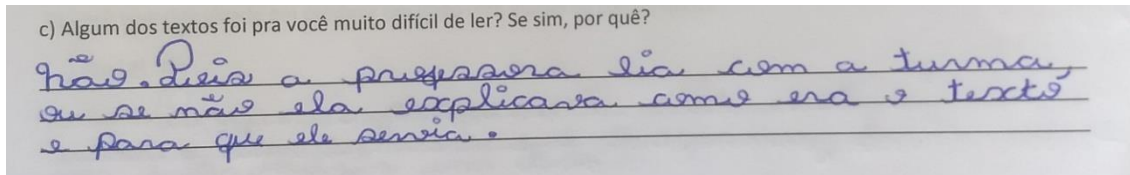 c) Algum dos textos foi pra você muito difícil de ler? Se sim, por quê?
não. Pois a professora lia com a turma,
ou se não ela explicava como era o texto
e para que ele servia.